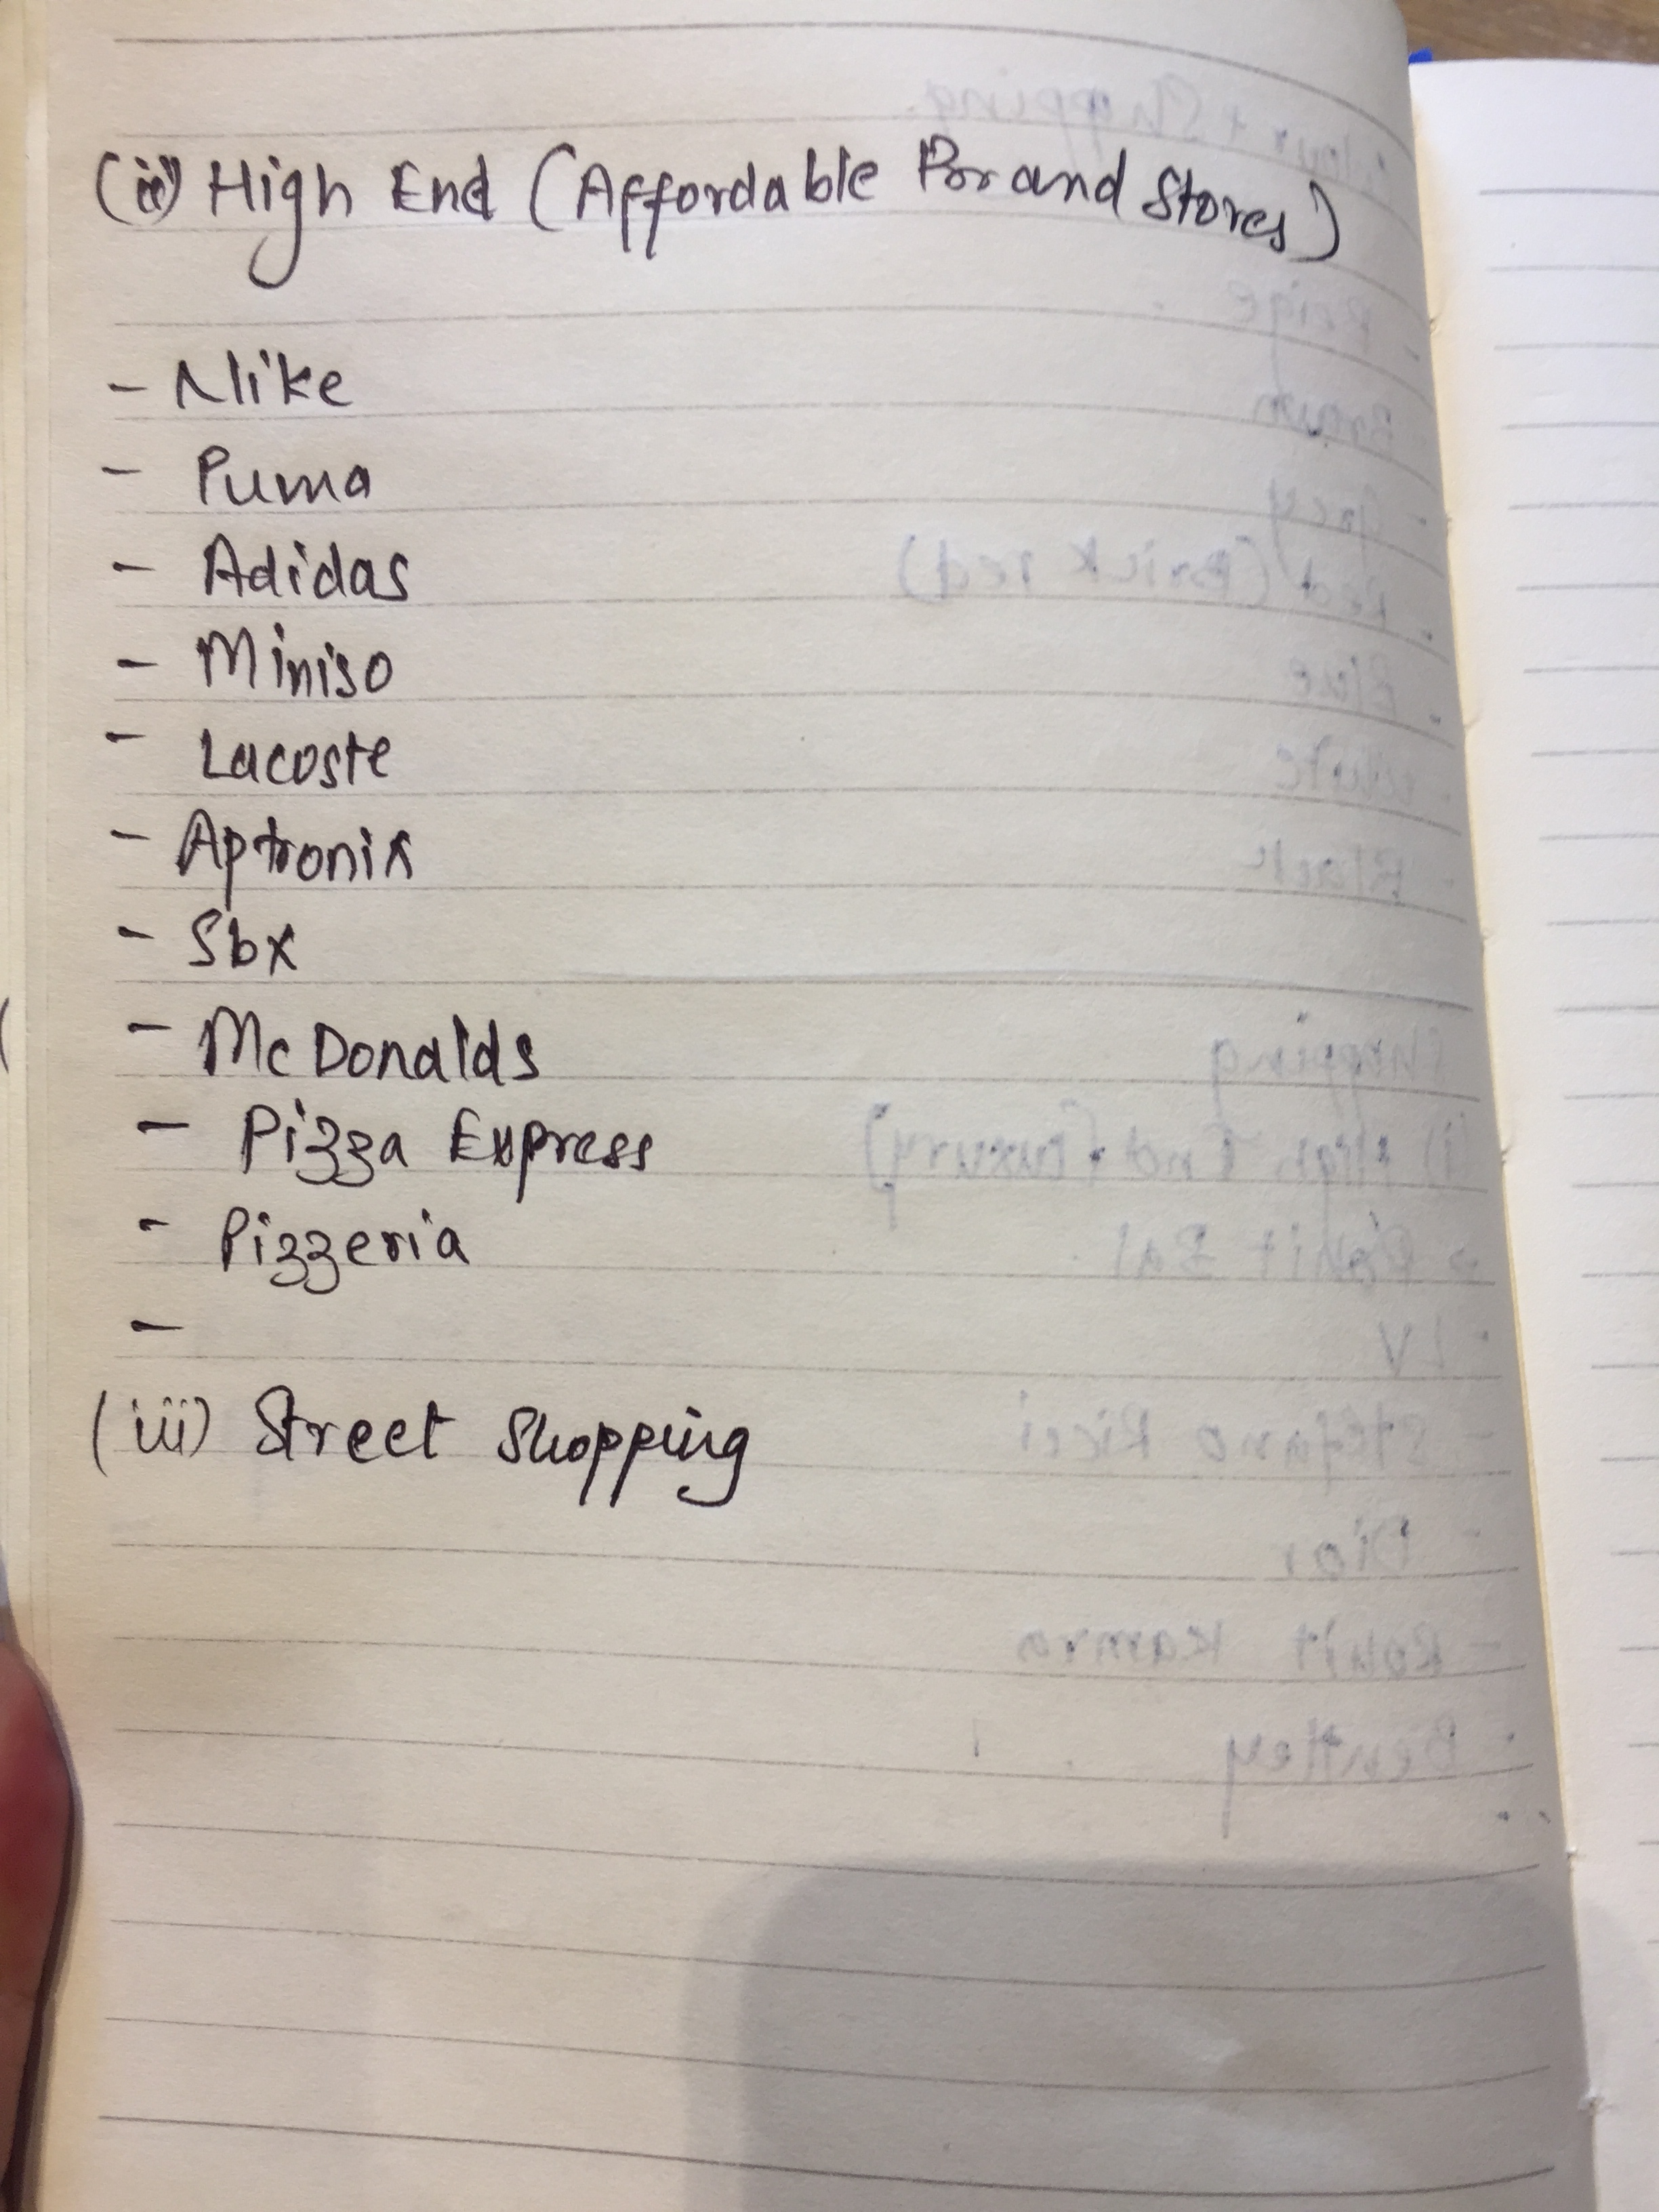 (ii) High End (Affordable Brand Stores)
- Nike
- Puma
- Adidas
- Miniso
- Lacoste
- Aptronix
- Sbx
- McDonalds
- Pizza Express
- Pizzeria
-
(iii) Street Shopping